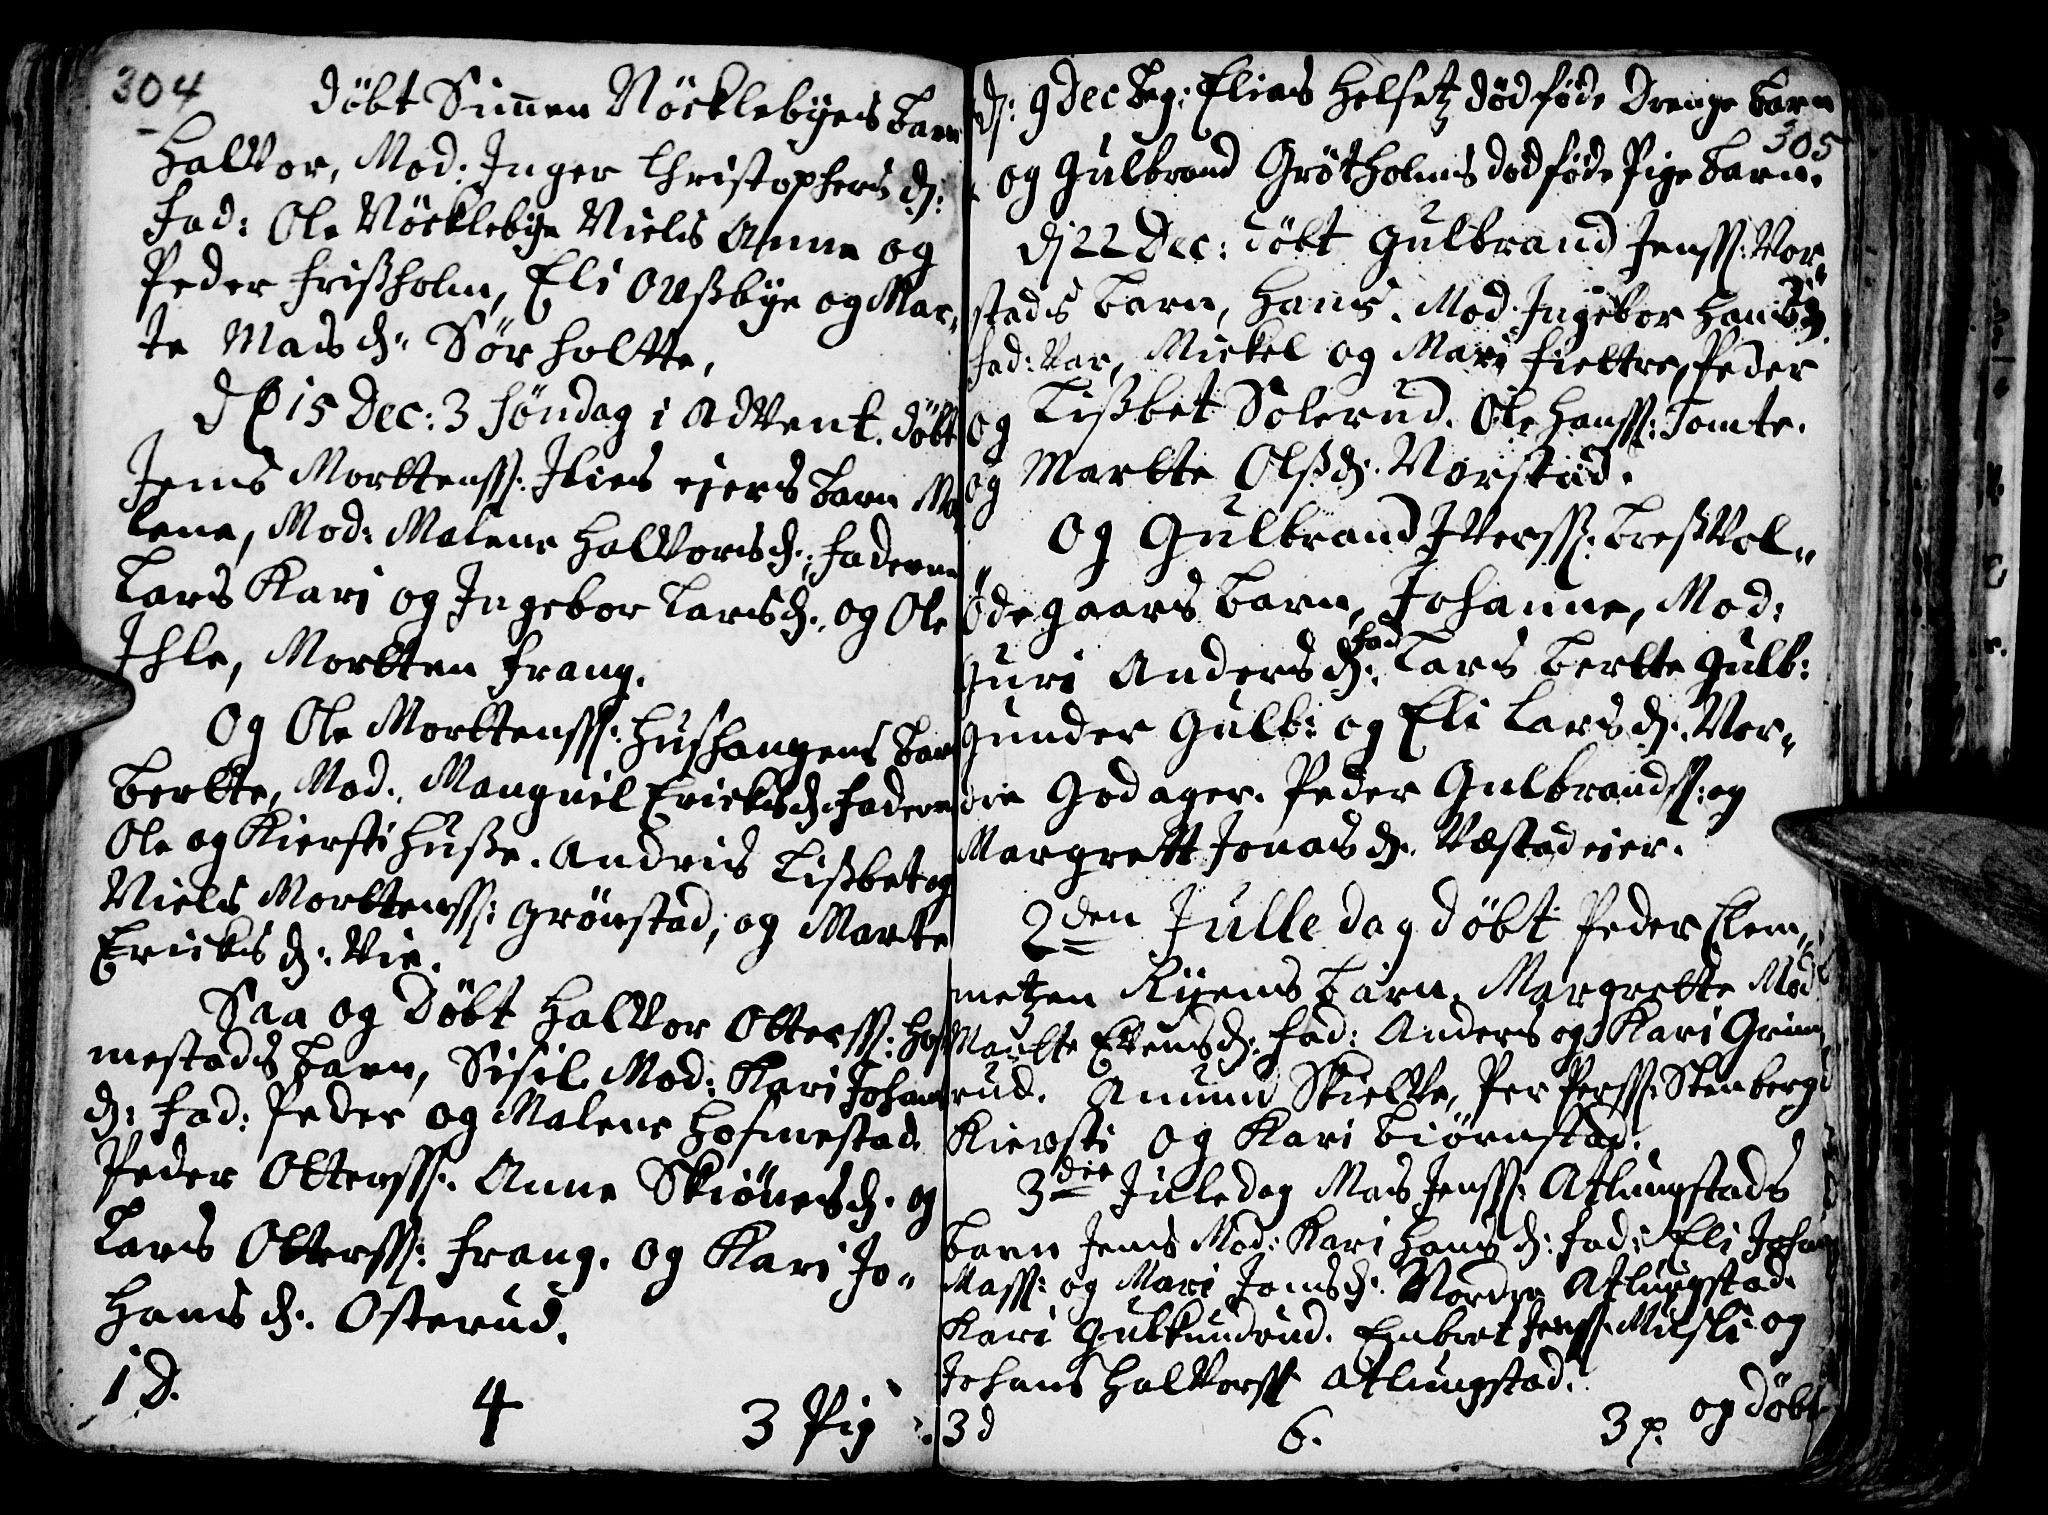 304
døbt Simen Nöcklebÿes barn
Halvor, Mod: Inger Christophers d:
Fad: Ole Nöcklebÿe Niels Anne og
Peder Frißholm, Eli Oußbÿe og Mar„
te Mads d„ Sörholtte,
D 15 Dec: 3 Söndag i Advent. döbt
Jens Morttenss: Ihles eiers barn Ma„
lene, Mod: Malene Halvors d: Faderne
Lars Kari og Ingebor Lars d:, og Ole
Ihle, Mortten Frang.
Og Ole Morttenss: Hushangens barn
Bertte, Mod: Mangnil Ericks d: Faderne
Ole og Kiersti Huße. Andris Lißbet og
Niels Morttenss: Grönstad, og Marte
Ericks d: Vie.
Saa og Döbt Halvor Ottersss: Hof„
mestads barn, Sisil. Mod: Kari Johans
d: Fad: Peder og Malene Hofmestad.
Peder Otterss: Anne Skiönes d: og
Lars Otterss: Frang. og Kari Jo„
hans d: Osterud.
1 d. 4 3 Pig
305
d: 9 Dec Beg: Elias Helsetz dödföde Drenge barn
og Gulbrand Grötholms dödföde Pige barn.
D 22 Dec: döbt Gulbrand Jenss: Vor„
stads barn, Hans. Mod: Ingebor Hans d:
Fad: Var, Mickel og Mari Fieltre, Peder
og Lißbet Solerud. Ole Hanss: Tomte.
og Martte Olß d: Vorstad.
Og Gulbrand Iverss: Breßvol„
ödegaars barn, Johanne, Mod:
Guri Anders d: Fad Lars Bertte Gulb:
Gunder Gulb: og Eli Lars d: Vor„
die Godager. Peder Gulbrands: og
Margrett Jonas d: Væstad eier.
2den Julledag döbt Peder Clem„
metzen Rÿens barn. Margrette Mod
Martte Evens d: Fad: Anders og Kari Grim„
rud. Amund Skielve, Per Perss: Stenberg
Kiersti og Kari Biörnstad.
3die Juledag Mads Jenss: Atlungstads
barn Jens Mod: Kari Hans d: Fad: Eli Johans
Mass: og Mari Jens d: Nordre Atlungstad.
Kari Gulkundrud. Embret Jenss: Misli og
Johans Halvorss Atlungstad.
og döbt
3 d 6. 3 p.